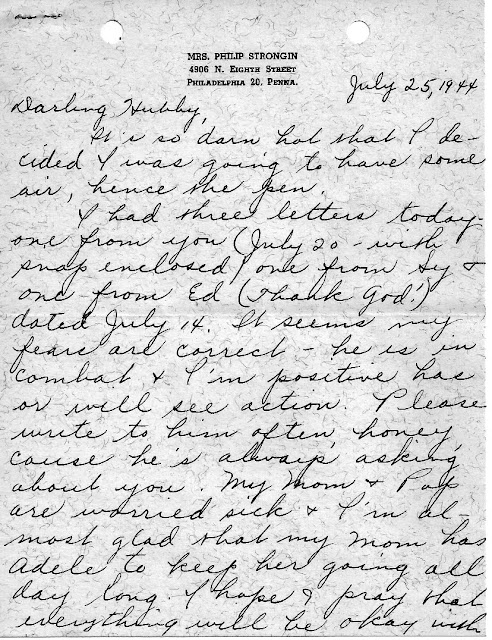 MRS. PHILIP STRONGIN
4906 N. EIGHTH STREET
PHILADELPHIA 20, PENNA.
July 25, 1944
Darling Hubby,
It is so darn hot that I de-
cided I was going to have some
air, hence the pen.
I had three letters today-
one from you (July 20 - with
snap enclosed) one from Sy &
one from Ed (Thank God!)
dated July 14. It seems my
fears are correct - he is in
combat & I'm positive has
or will see action. Please
write to him often, honey
cause he's always asking
about you. My Mom & Pop
are worried sick & I'm al-
most glad that my Mom has
Adele to keep her going all
day long. I hope & pray that
everything will be okay with